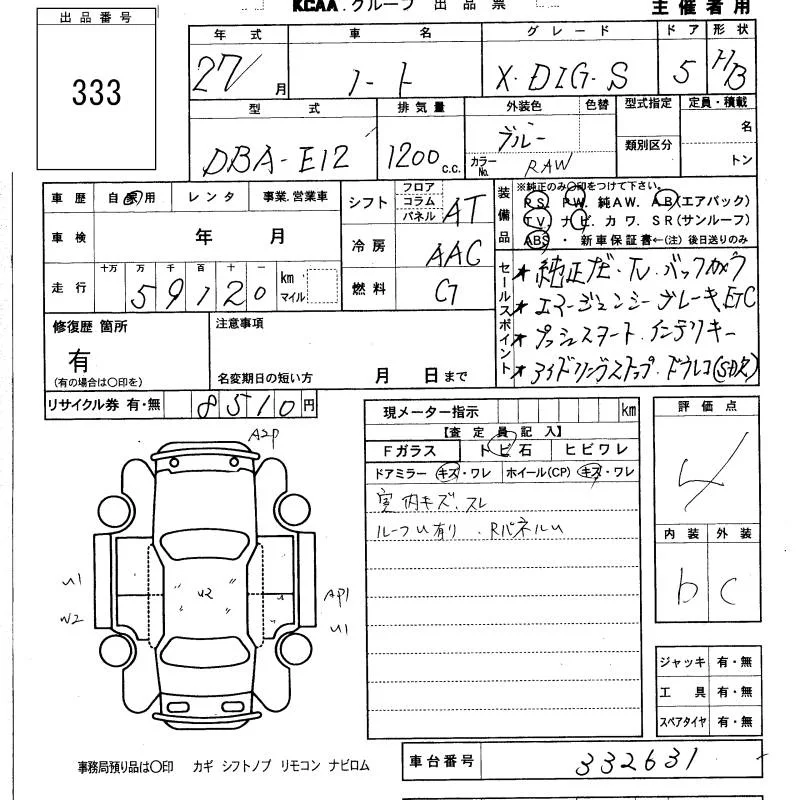 KCAA.グループ 出品票
主催者用
出品番号
333
年式 車名 グレード ドア 形状
27/ 月 ノート X・DIG-S 5 HB
型式 排気量 外装色 色替 型式指定 定員・積載
DBA-E12 1200 c.c. ブルー 名
類別区分
カラーNo. RAW トン
車歴 自家用 レンタ 事業・営業車
シフト フロア コラム パネル AT
装備品 ※純正のみ○印をつけて下さい。
PS. PW. 純AW. AB(エアバック)
TV. ナビ. カワ. SR(サンルーフ)
ABS ・ 新車保証書←(注) 後日送りのみ
車検 年 月
冷房 AAC
走行 十万 万 千 百 十 一
59120 km マイル
燃料 G
セールスポイント
★純正ナビ・TV バックカメラ
★エマージェンシーブレーキ ETC
★プッシュスタート インテリキー
★アイドリングストップ ドラレコ(SD欠)
修復歴 箇所
有
(有の場合は○印を)
注意事項
名変期日の短い方 月 日まで
リサイクル券 有・無 8510円
現メーター指示 km
評価点
4
【査定員記入】
Fガラス トビ石 ヒビワレ
ドアミラー キズ・ワレ ホイール(CP) キズ・ワレ
室内キズ、スレ
ルーフU有り、RパネルU
内装 外装
b c
A2P
U1
W2
U2
AP1
U1
ジャッキ 有・無
工具 有・無
スペアタイヤ 有・無
事務局預り品は○印 カギ シフトノブ リモコン ナビロム
車台番号 332631